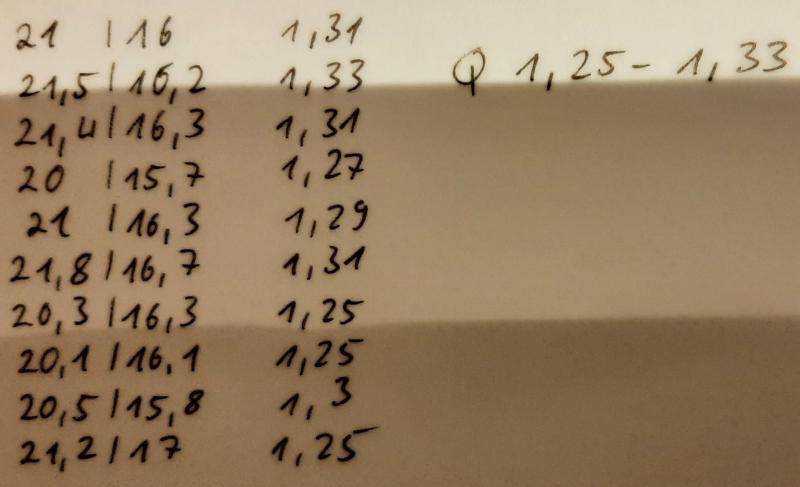 21 | 16 1,31
21,5 | 16,2 1,33
Q 1,25 - 1,33
21,4 | 16,3 1,31
20 | 15,7 1,27
21 | 16,3 1,29
21,8 | 16,7 1,31
20,3 | 16,3 1,25
20,1 | 16,1 1,25
20,5 | 15,8 1,3
21,2 | 17 1,25